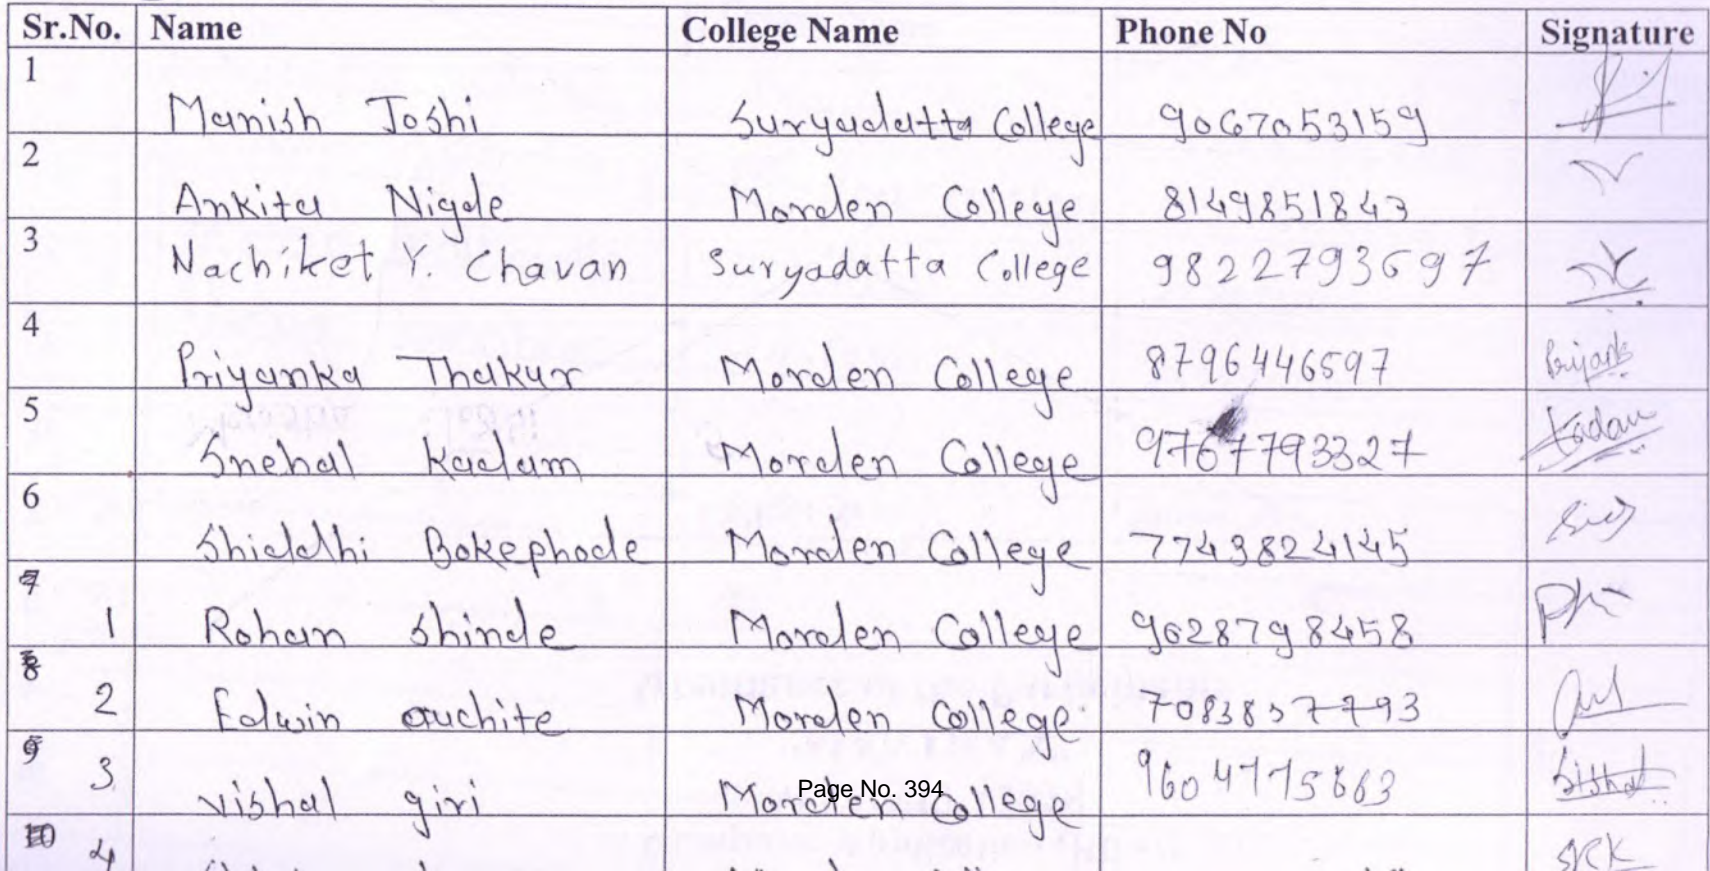 Sr.No. Name College Name Phone No Signature
1 Manish Joshi Suryadatta College 9067053159
2 Ankita Nigde Morden College 8149851843
3 Nachiket Y. Chavan Suryadatta College 9822793697
4 Priyanka Thakur Morden College 8796446597
5 Snehal Kadam Morden College 9767793327 Kadam
6 Shiddhi Bokephode Morden College 7743824145
7 1 Rohan Shinde Morden College 9628798458
8 2 Edwin Morden College. 7083857793
9 3 vishal giri Morden College 9604775663
Page No. 394
10 4 SKK